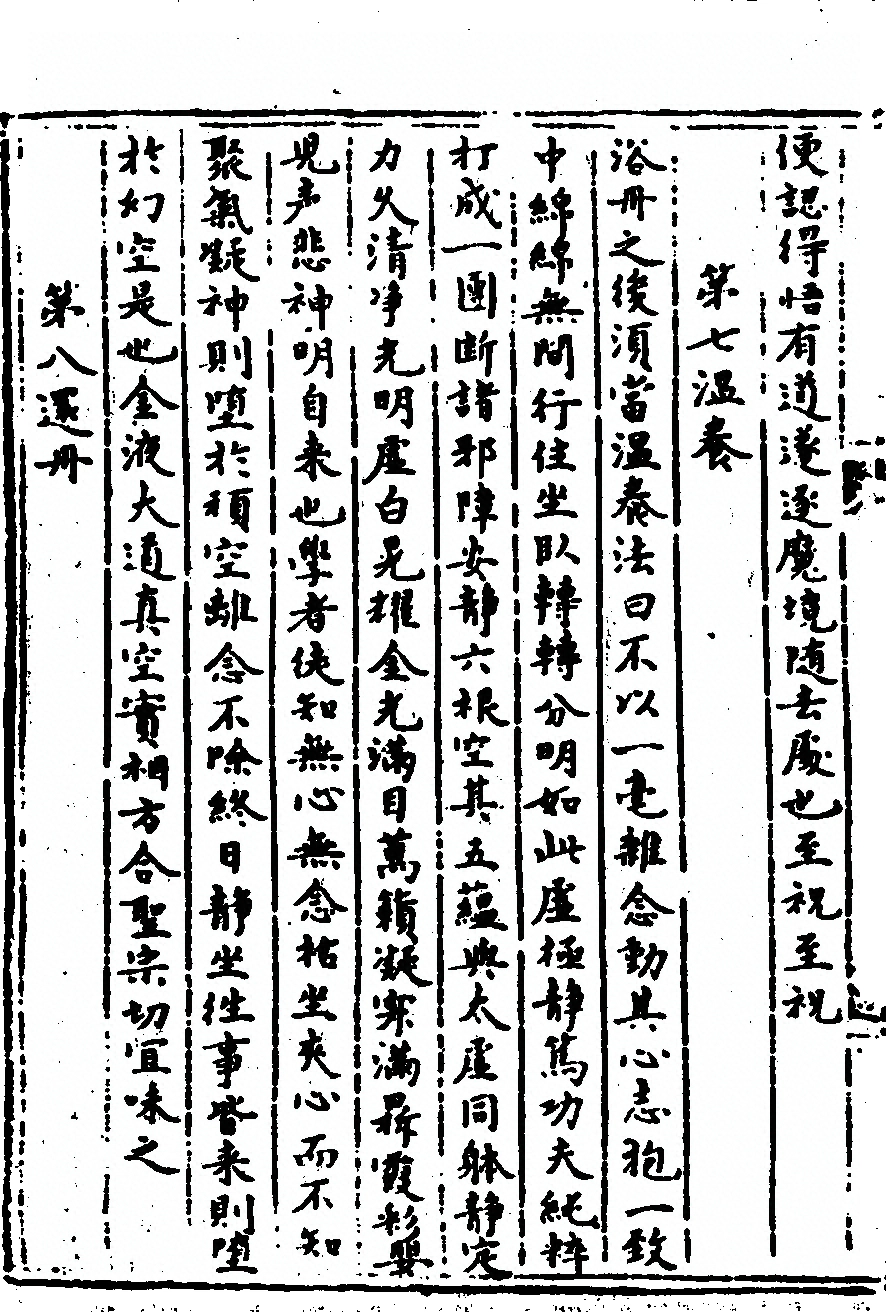 便認得悟有道遂逐魔境随去處也至祝至祝
第七温養
浴丹之後須當温養法曰不以一毫雜念動其心志抱一致
中綿綿無間行住坐臥轉轉分明如此虚極静篤功夫純粹
打成一團断諸邪障安静六根空其五蘊與太虚同躰静定
力久清净光明虚白晃耀金光滿目萬籟凝寂滿鼎霞彩嬰
児声悲神明自来也學者徒知無心無念枯坐灰心而不知
聚氣凝神則堕於頑空雜念不除終日静坐徃事皆来則堕
於幻空是也金液大道真空實相方合聖宗切宜味之
第八還丹